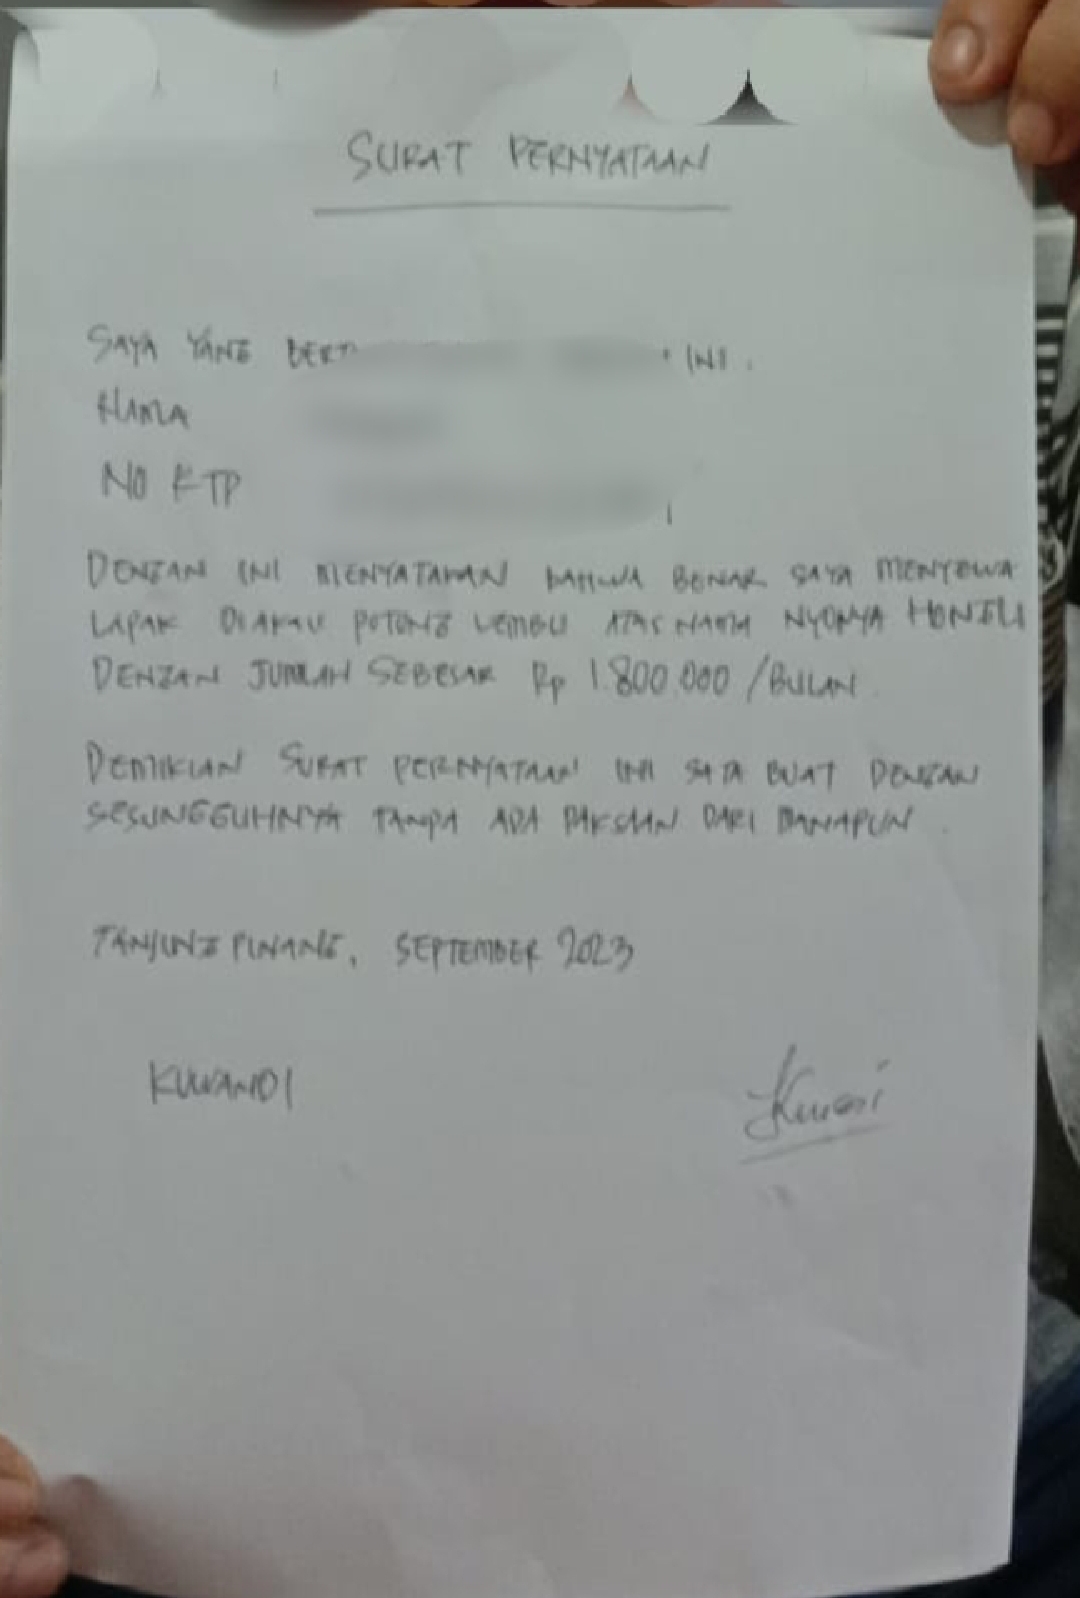 SURAT PERNYATAAN
SAYA YANG BERT INI.
NAMA
NO KTP
DENGAN INI MENYATAKAN BAHWA BENAR SAYA MENYEWA
LAPAK DIAKAU POTONG LEMBU ATAS NAMA NYONYA
DENGAN JUMLAH SEBESAR Rp 1.800.000 /BULAN
DEMIKIAN SURAT PERNYATAAN INI SAYA BUAT DENGAN
SESUNGGUHNYA TANPA ADA PAKSAAN DARI MANAPUN.
TANJUNG PINANG, SEPTEMBER 2023
KUWANDI